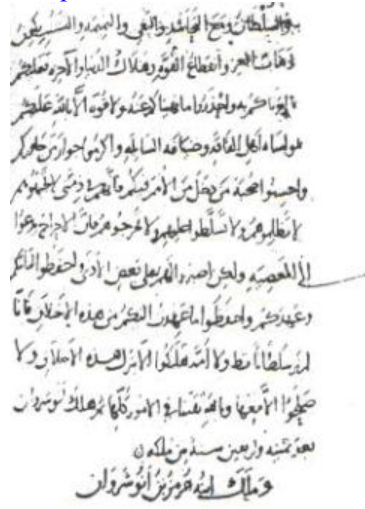 السلطان ومع التحاسد والبغي والنميمة والتستر يكون
ذهاب العز وانقطاع القوة وهلاك الدنيا والآخرة فعليكم
بما أمرناكم به واحذروا ما نهيناكم عنه ولا قوة الا بالله عليكم
بمواساة أهل الفاقة وضيافة السابلة واكرموا جوار من جاوركم
واحسنوا صحبة من دخل من الأمم فيكم فانهم في ذمتي لا تجبهوهم
لا تظلموهم ولا تسلطوا عليهم ولا تحرجوهم فان الاحراج يدعوا
الى المعصية ولكن اصبروا لهم على بعض الأذى واحفظوا امانتكم
وعهدكم واحفظوا ما عهدت اليكم من هذه الاخلاق فانا
لم نر سلطانا قط ولا أمة هلكوا الا بترك هذه الاخلاق ولا
صلحوا الا معها وبالله ثقتنا في الامور كلها ثم هلك انوشروان
بعد ثمنية واربعين سنة من ملكه
وملك ابنه هرمز بن انوشروان